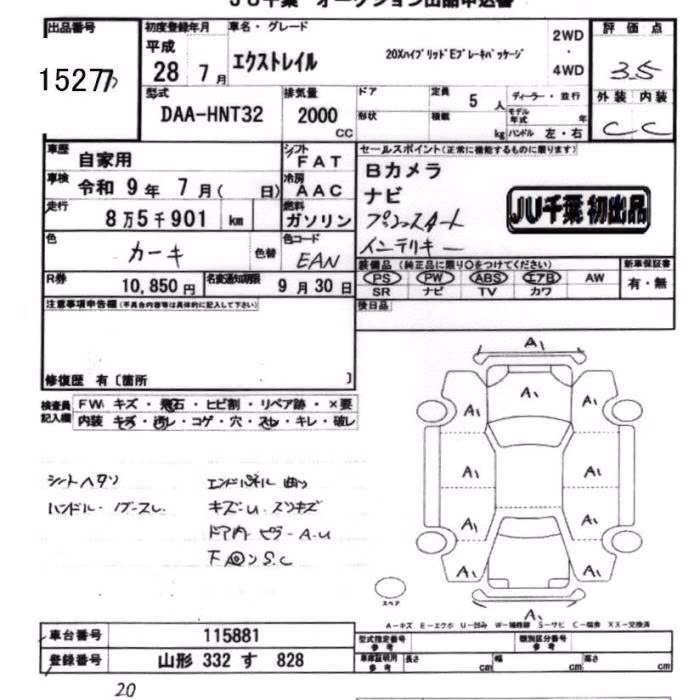 JU千葉 オークション出品申込書
出品番号 初度登録年月 車名・グレード 評価点
15277 平成 28 7月 エクストレイル 20XハイブリッドEブレーキパッケージ 2WD・4WD 3.5
型式 排気量 ドア 定員 ディーラー・並行 外装 内装
DAA-HNT32 2000 CC 5人 C C
形状 積載 kg モデル年式 年 ハンドル 左・右
車歴 自家用 シフト FAT セールスポイント(正常に機能するものに限ります)
車検 令和 9年 7月( 日) 冷房 AAC Bカメラ
ナビ
走行 8万5千901 km 燃料 ガソリン プッシュスタート
JU千葉 初出品
色 カーキ 色替 色コード EAN インテリキー
R券 10,850円 名変通知期限 9月30日
装備品(純正品に限り○をつけてください) 新車保証書
PS PW ABS エアB AW 有・無
SR ナビ TV カワ
注意事項申告欄(不具合内容等は具体的に記入して下さい) 後日品
修復歴 有〔箇所 〕
検査員記入欄 FW キズ・飛石・ヒビ割・リペア跡・×要
内装 キズ・汚レ・コゲ・穴・スレ・キレ・破レ
シートヘタリ エンドパネル曲り
ハンドル・ノブスレ キズ・U.スリキズ
ドア内・ピラーA.U
S.C
A1
A1 A1 A1
A1 A1
A1 A1
A1 A1
A1
スペア
A-キズ E-エクボ U-凹み W-補修跡 S-サビ C-腐食 XX-交換済
車台番号 115881 型式指定番号 参考 類別区分番号 参考
登録番号 山形 332 す 828 車庫証明用 参考 長さ cm 幅 cm 高さ cm
20